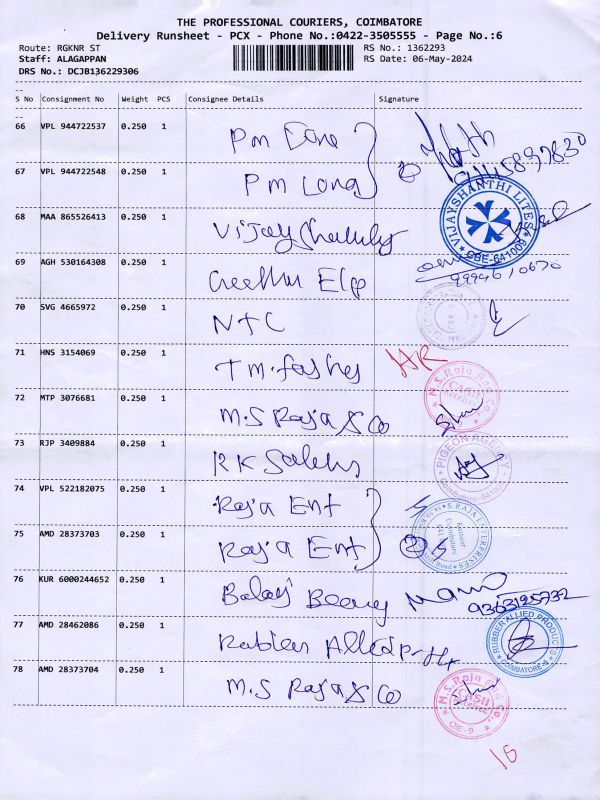 THE PROFESSIONAL COURIERS, COIMBATORE
Delivery Runsheet - PCX - Phone No.:0422-3505555 - Page No.:6
Route: RGKNR ST RS No.: 1362293
Staff: ALAGAPPAN RS Date: 06-May-2024
DRS No.: DCJB136229306
S No Consignment No Weight PCS Consignee Details Signature
66 VPL 944722537 0.250 1 Pm
67 VPL 944722548 0.250 1 Pm 2
VIJAYSHANTHI LITES CBE-641009
68 MAA 865526413 0.250 1 Vijay
69 AGH 530164308 0.250 1
9994610670
70 SVG 4665972 0.250 1 NTC
71 HNS 3154069 0.250 1 Tm. HR
72 MTP 3076681 0.250 1 M.S Raja & Co M.S. Raja And Co. CASH
73 RJP 3409884 0.250 1 RK PIGEON AGENCY
74 VPL 522182075 0.250 1 Raja Ent
75 AMD 28373703 0.250 1 Raja Ent 2 S.RAJA ENTERPRISES
76 KUR 6000244652 0.250 1 Balaji
77 AMD 28462086 0.250 1 Allied RUBBER ALLIED PRODUCTS COIMBATORE-9
78 AMD 28373704 0.250 1 M.S Raja & Co M.S. Raja And Co. CASH CBE-9